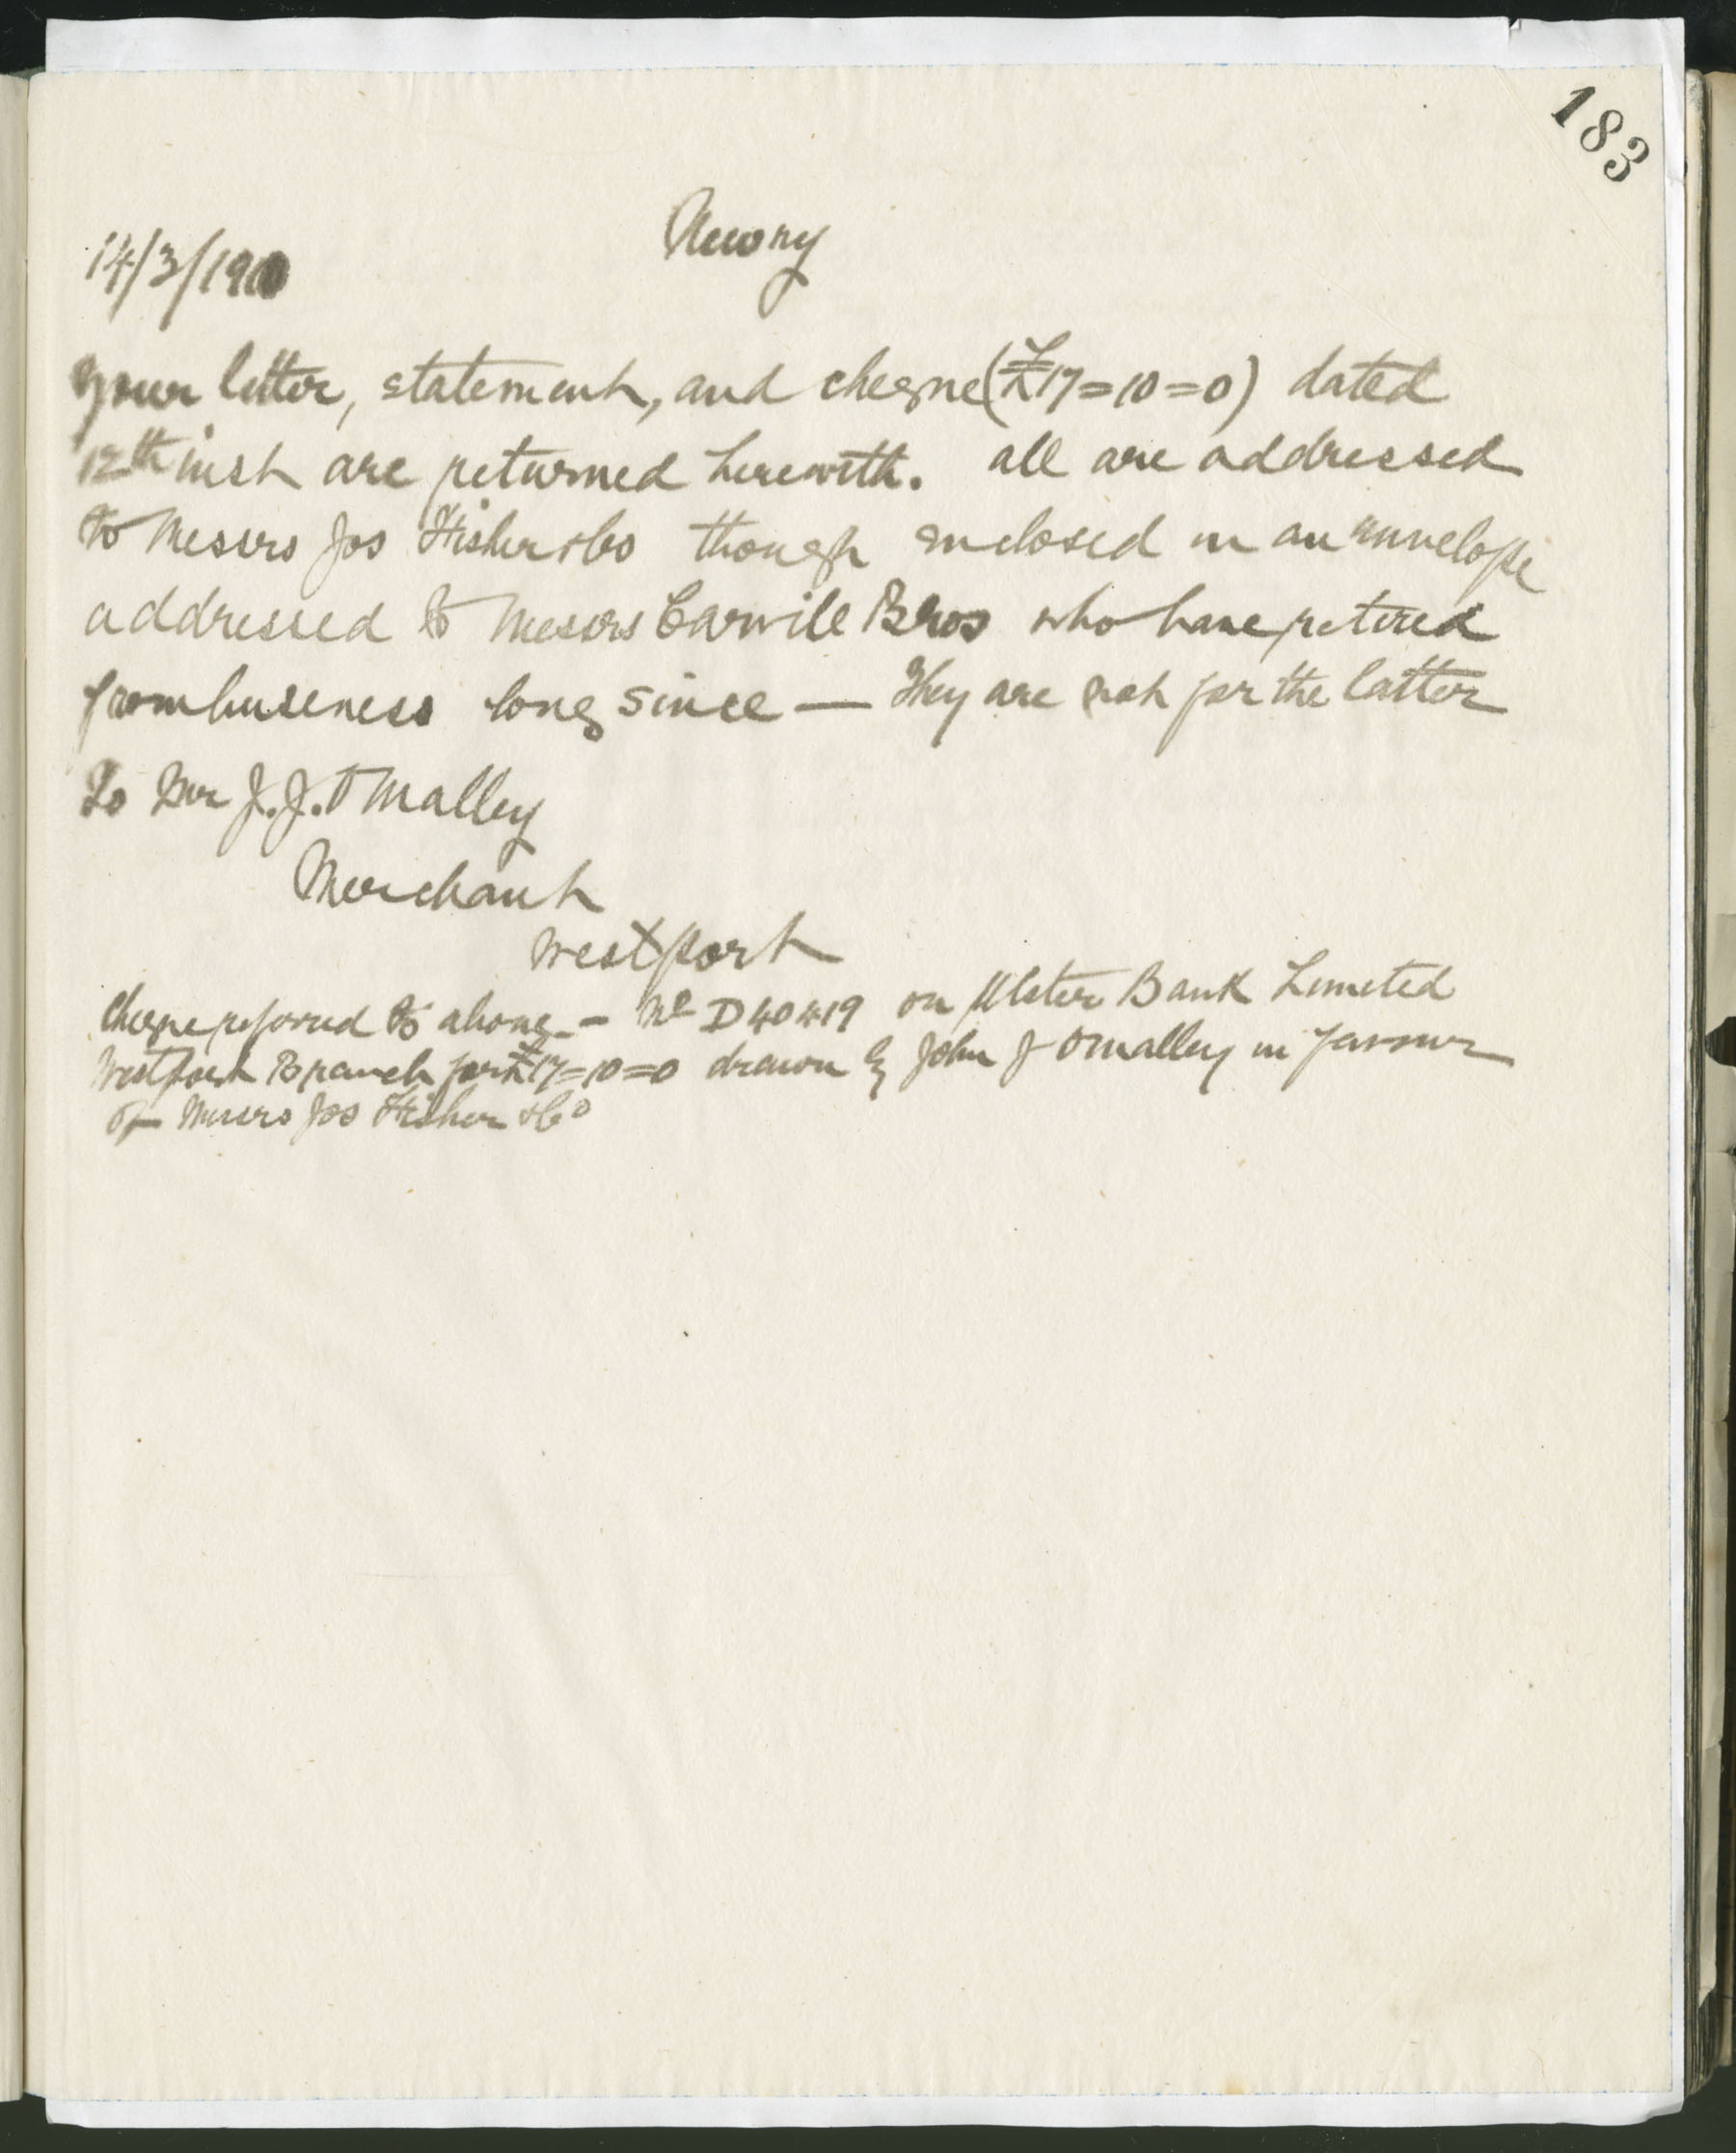 183
Newry
14/3/1910
Your letter, statement, and cheque (£17=10=0) dated
12th inst are returned herewith. all are addressed
to Messrs Jos Fisher & Co though enclosed in an envelope
addressed to Messrs Carvill Bros who have retired
from business long since — They are not for the latter
To Mr J. J. O'Malley
Merchant
Westport
Cheque referred to above - No D40419 on Ulster Bank Limited
Westport Branch for £17=10=0 drawn by John J OMalley in favour
of Messrs Jos Fisher & Co